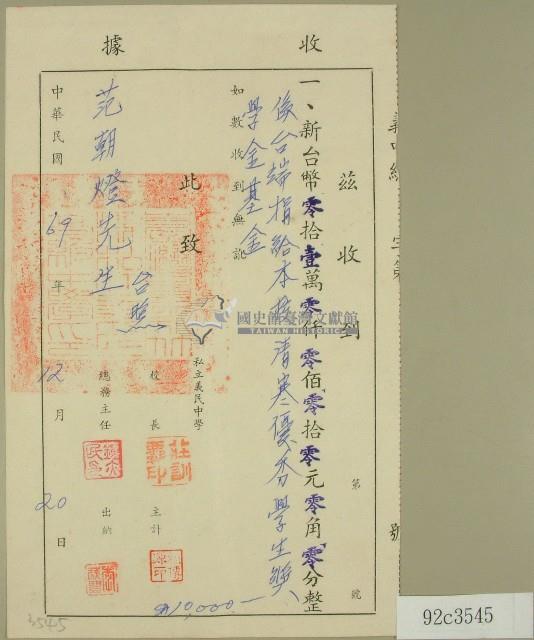 收據
茲收到
第 號
一、新台幣零拾壹萬零仟零佰零拾零元零角零分整
係台端捐給本校清寒優秀學生獎
學金基金
如數收到無訛
此致
范朝燈先生 台照
私立義民中學
校長
主計
總務主任
出納
中華民國69年12月20日
10,000.
國史館臺灣文獻館
TAIWAN HISTORICA
號
3545
92c3545